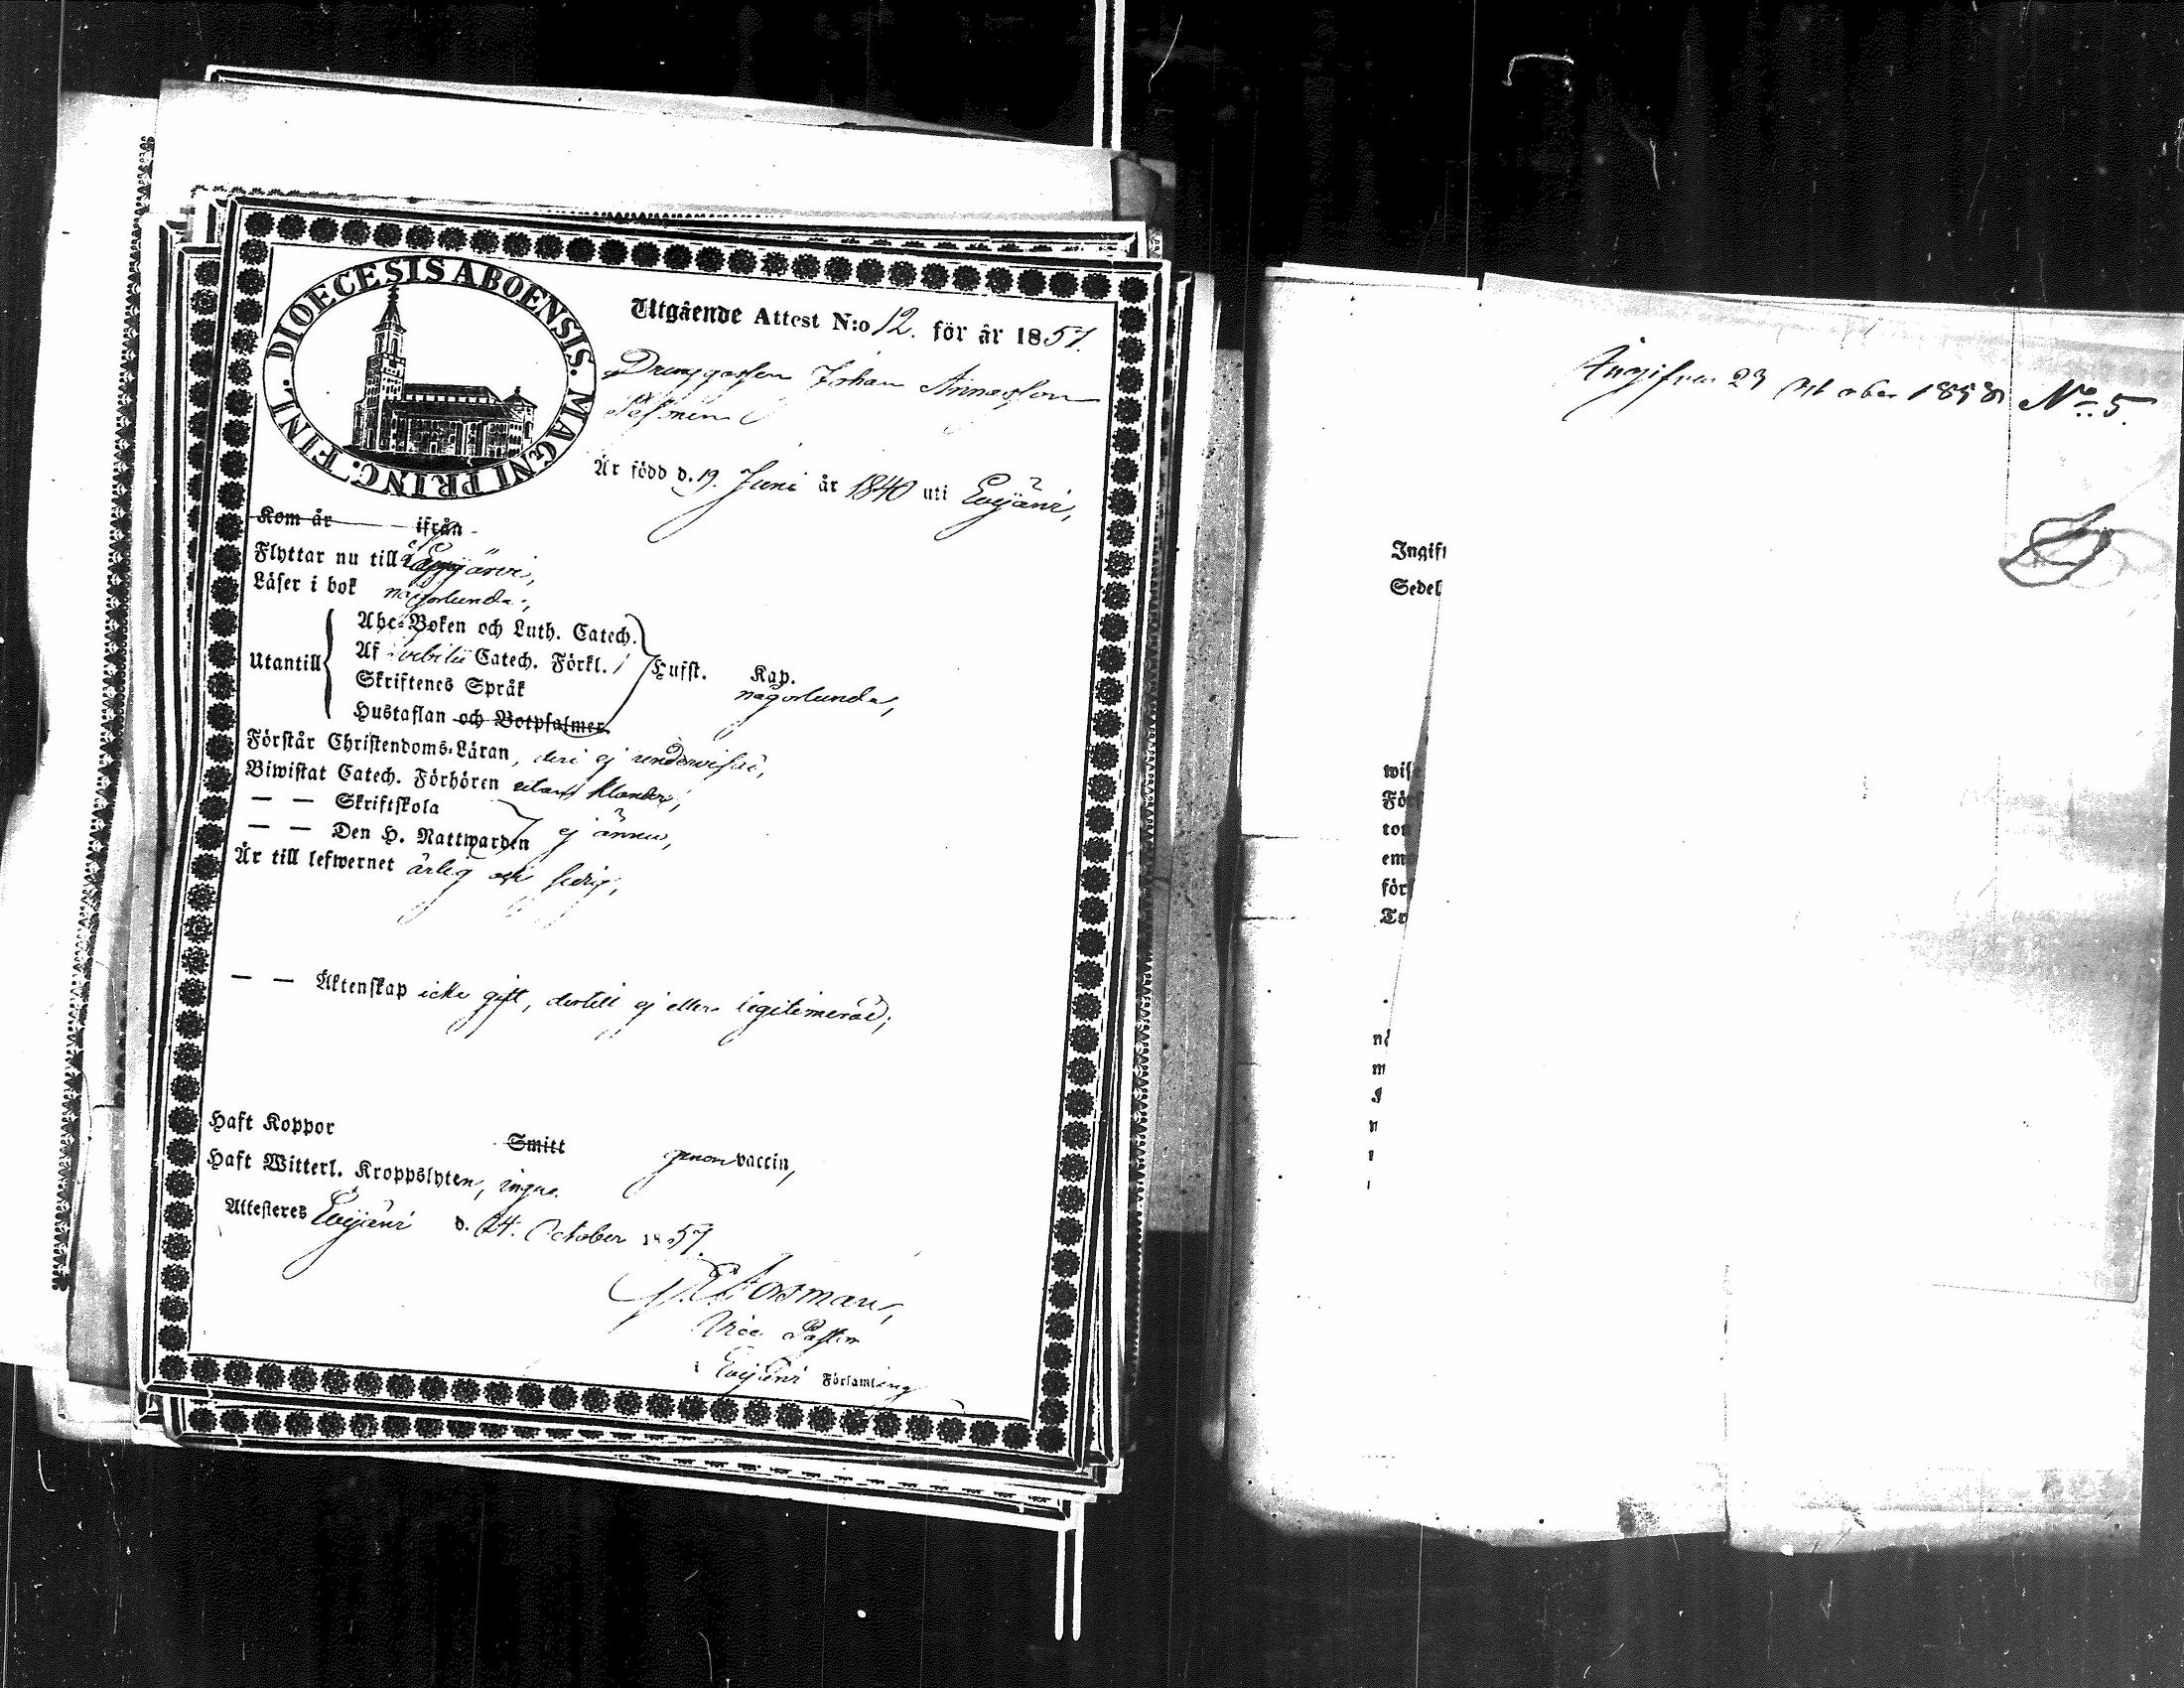 DIOECESIS ABOENSIS. MAGNI PRINC. FINL.
Utgående Attest N:o 12. för år 1857.
Drenggossen Johan Annasson
Är född d. 19. Juni år 1840 uti Evijärvi,
Kom år ifrån
Flyttar nu till Lappajärvi,
Läser i bok någorlunda;
Utantill
Abc-Boken och Luth. Catech.
Af Svebilii Catech. Förkl.
Skriftenes Språk
Hustaflan och Botpsalmer
Lufft. Kap.
någorlunda,
Förstår Christendoms-Läran, deri ej undervisad,
Biwistat Catech. Förhören utan klander,
— — Skriftskola
— — Den H. Nattwarden ej ännu,
Är till lefwernet ärlig och sedig,
— — Äktenskap icke gift, dertill ej eller legitimerad;
Haft Koppor Smitt genom vaccin,
Haft Witterl. Kroppslyten, inga.
Attesteres Evijärvi d. 24. October 1857.
Forsman,
Vice Pastor
i Evijärvi Församling
Ingifven 23 October 1858 No 5.
Ingif
Sedel
wis
För
ton
em
för
Tr